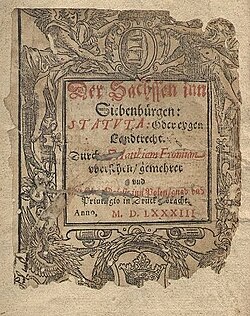 Der Sachssen inn
Siebenbürgen:
STATVTA: Oder eygen
Landtrecht.
Durch
Matthiam Fronium
vbersehen/ gemehret
vnd
Kön: Maiest: inn Polen gnad: vnd
Priuilegio in Druck gebracht.
Anno, M. D. LXXXIII